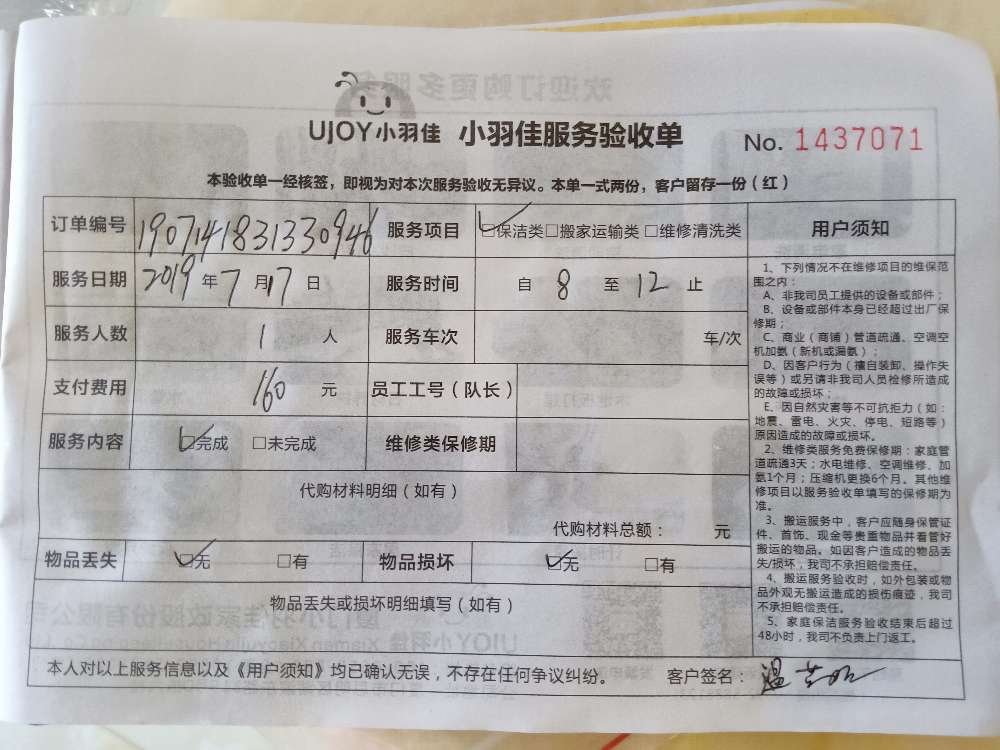 UJOY小羽佳 小羽佳服务验收单 No. 1437071
本验收单一经核签，即视为对本次服务验收无异议。本单一式两份，客户留存一份（红）
订单编号 190714183133094​6 服务项目 ☑保洁类□搬家运输类□维修清洗类
服务日期 2019年7月17日 服务时间 自8至12止
服务人数 1人 服务车次 车/次
支付费用 160元 员工工号（队长）
服务内容 ☑完成 □未完成 维修类保修期
代购材料明细（如有）
代购材料总额： 元
物品丢失 ☑无 □有 物品损坏 ☑无 □有
物品丢失或损坏明细填写（如有）
用户须知
1、下列情况不在维修项目的维保范
围之内：
A、非我司员工提供的设备或部件；
B、设备或部件本身已经超过出厂保
修期；
C、商业（商铺）管道疏通、空调空
机加氨（新机或漏氨）；
D、因客户行为（擅自装卸、操作失
误等）或另请非我司人员检修所造成
的故障或损坏；
E、因自然灾害等不可抗拒力（如：
地震、雷电、火灾、停电、短路等）
原因造成的故障或损坏。
2、维修类服务免费保修期：家庭管
道疏通3天；水电维修、空调维修、加
氨1个月；压缩机更换6个月。其他维
修项目以服务验收单填写的保修期为
准。
3、搬运服务中，客户应随身保管证
件、首饰、现金等贵重物品并看管好
搬运的物品。如因客户造成的物品丢
失/损坏，我司不承担赔偿责任。
4、搬运服务验收时，如外包装或物
品外观无搬运造成的损伤痕迹，我司
不承担赔偿责任。
5、家庭保洁服务验收结束后超过
48小时，我司不负责上门返工。
本人对以上服务信息以及《用户须知》均已确认无误，不存在任何争议纠纷。 客户签名：温